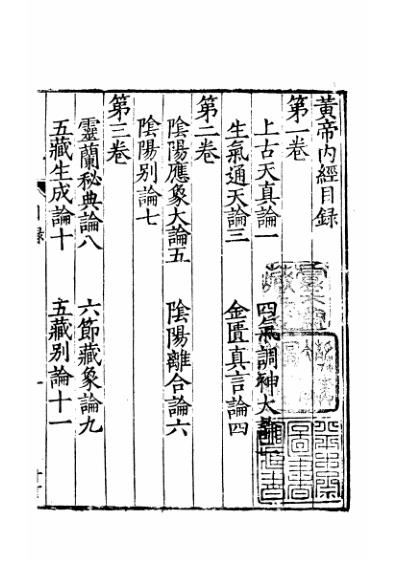 黃帝内經目録
第一卷
上古天真論一 四氣調神大論二
生氣通天論三 金匱真言論四
第二卷
陰陽應象大論五 陰陽離合論六
陰陽别論七
第三卷
靈蘭秘典論八 六節藏象論九
五藏生成論十 五藏别論十一
目録